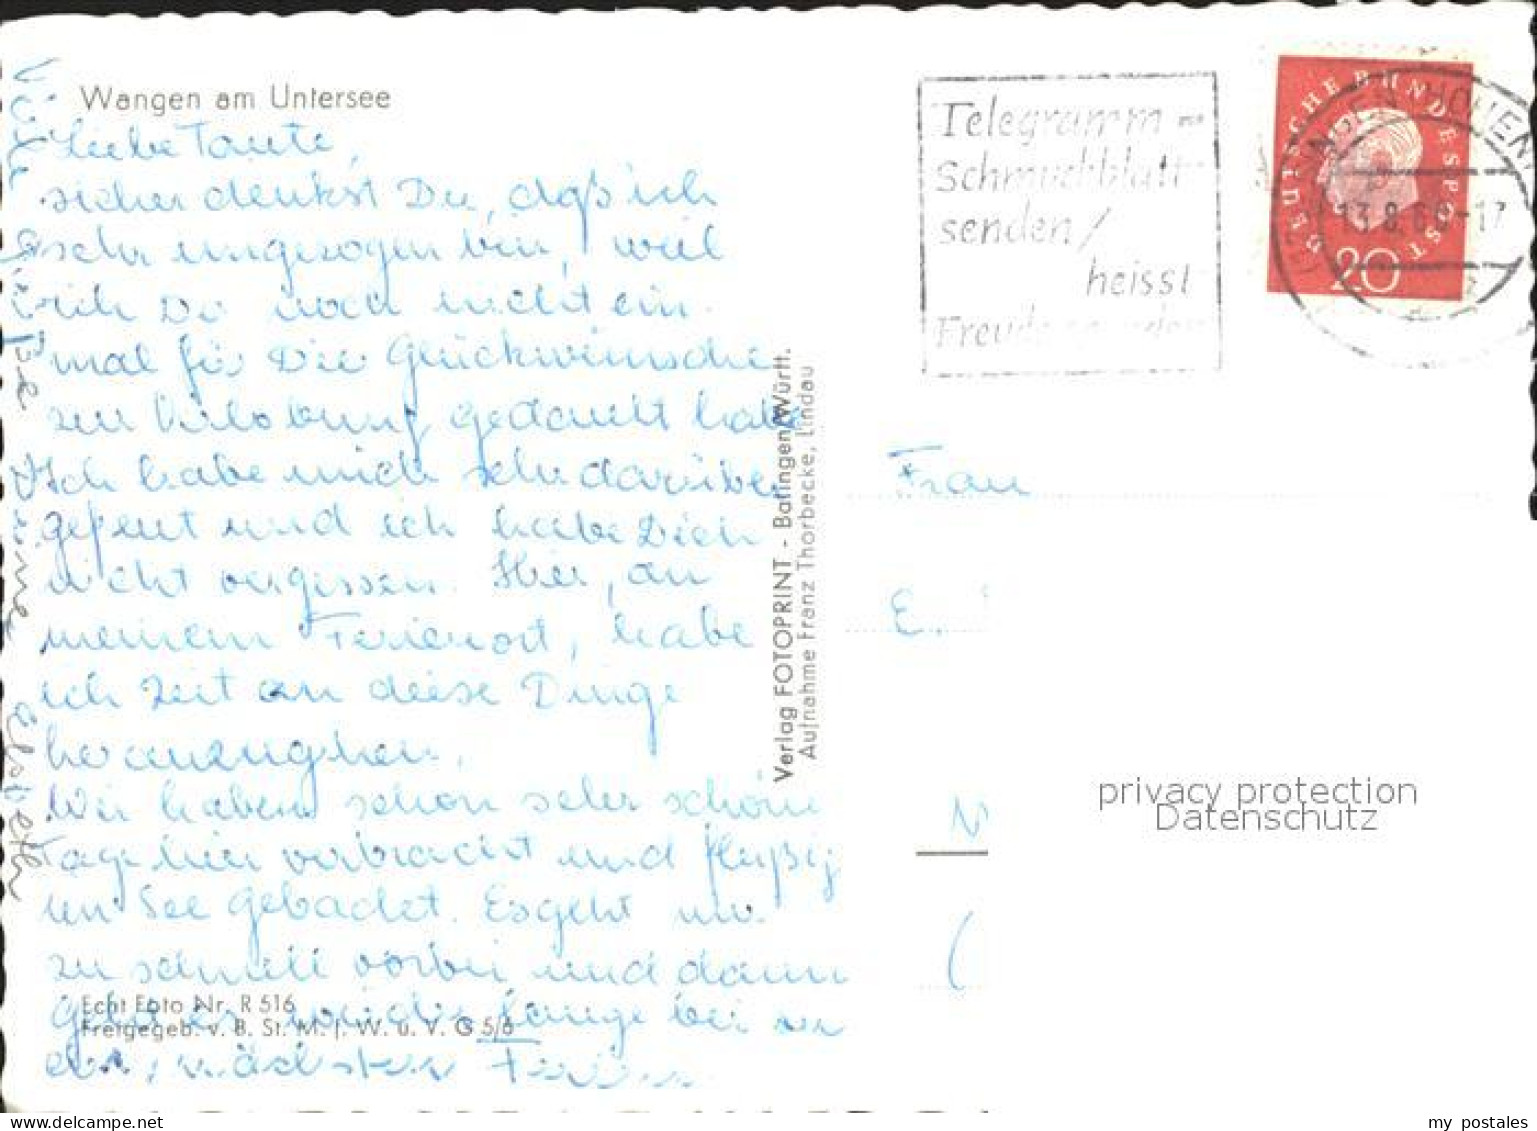 Wangen am Untersee
Liebe Tante,
sicher denkst Du, daß ich
sehr ungezogen bin, weil
ich Dir noch nicht ein
mal für Die Glückwünsche
zur Verlobung gedankt habe
Ich habe mich sehr darüber
gefreut und ich habe Dich
nicht vergessen. Hier, an
meinem Ferienort, habe
ich Zeit an diese Dinge
heranzugehen.
Wir haben schon sehr schöne
Tage hier verbracht und fleißig
im See gebadet. Es geht nur
zu schnell vorbei und dann
wieder lange bis zu
den nächsten Ferien
Viele
Grüße Deine Elsbeth
Echt Foto Nr. R 516
Freigegeb. v. B. St. M. f. W. u. V. G 5/6
Verlag FOTOPRINT - Balingen/Württ.
Aufnahme Franz Thorbecke, Lindau
Telegramm-
Schmuckblatt
senden/
heisst
Freude
DEUTSCHE BUNDESPOST
20
13.8.60-17
Frau
E.
privacy protection
Datenschutz
my postales